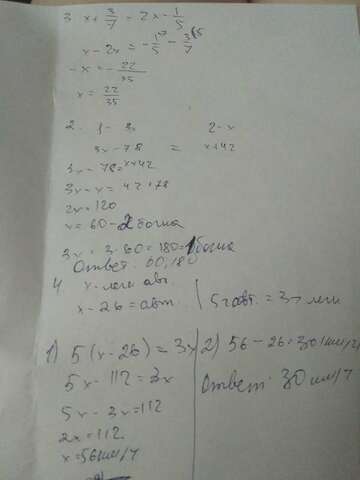 3 x + 3/7 = 2x - 1/5
x - 2x = - 1/5 - 3/7
- x = - 22/35
x = 22/35
2. 1 - 3x 2 - x
3x - 78 = x + 42
3x - 78 = x + 42
3x - x = 42 + 78
2x = 120
x = 60 - 2 бочка
3x = 3 · 60 = 180 = 1 бочка
Ответ. 60, 180
4 x - легк авт.
x - 26 = авт. 5 ч авт. = 3 ч легк
1) 5(x - 26) = 3x 2) 56 - 26 = 30 (км/ч)
5x - 112 = 3x Ответ: 30 км/ч
5x - 3x = 112
2x = 112
x = 56 км/ч